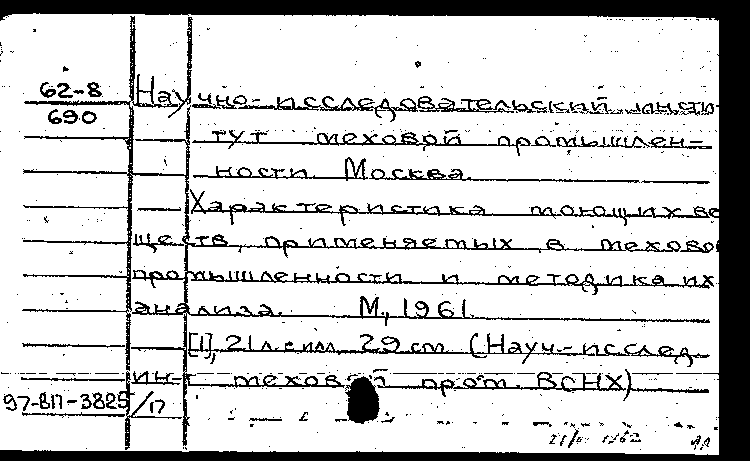 62-8
690
Научно-исследовательский инсти-
тут меховой промышлен-
ности. Москва.
Характеристика моющих ве
ществ, применяемых в мехово
промышленности и методика их
анализа. М., 1961.
[1], 21 л. с илл. 29 см. (Науч.-исслед.
ин-т меховой пром. ВСНХ)
97-ВП-3825/17